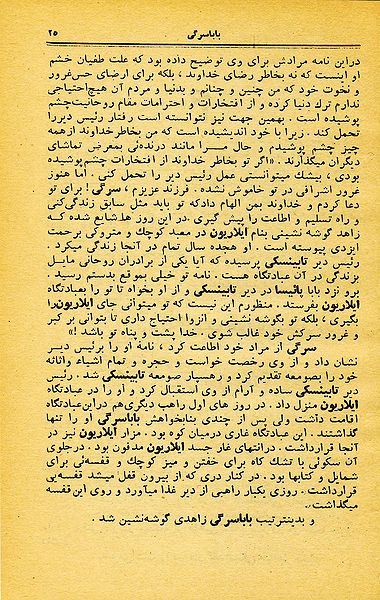 باباسرگی ۲۵
دراین نامه مرادش برای وی توضیح داده بود که علت طغیان خشم
او اینست که نه بخاطر رضای خداوند ، بلکه برای ارضای حس‌غرور
و نخوت خود که من چنین و چنانم و بدنیا و مردم آن هیچ‌احتیاجی
ندارم ترك دنیا کرده و از افتخارات و احترامات مقام روحانیت‌چشم
پوشیده است . بهمین جهت نیز نتوانسته است رفتار رئیس دیررا
تحمل کند. زیرا با خود اندیشیده است که من بخاطرخداوند ازهمه
چیز چشم پوشیدم و حال مرا مانند درنده‌ئی بمعرض تماشای
دیگران میگذارند. «اگر تو بخاطر خداوند از افتخارات چشم‌پوشیده
بودی ، بیشك میتوانستی عمل رئیس دیر را تحمل کنی . اما هنوز
غرور اشرافی در تو خاموش نشده . فرزند عزیزم ، سرگی! برای تو
دعا کردم و خداوند بمن الهام دادکه تو باید مثل سابق زندگی‌کنی
و راه تسلیم و اطاعت را پیش گیری. در این روز ها شایع شده که
زاهد گوشه نشینی بنام ایلاریون در معبد کوچك و متروکی برحمت
ایزدی پیوسته است . او هجده سال تمام در آنجا زندگی میکرد .
رئیس دیر تابینسکی پرسیده که آیا یکی از برادران روحانی مایل
بزندگی در آن عبادتگاه هست. نامه تو خیلی بموقع بدستم رسید.
برو نزد بابا پائیسا در دیر تابینسکی و از او بخواه تا تو را بعبادتگاه
ایلاریون بفرستد. منظورم این نیست که تو میتوانی جای ایلاریون‌را
بگیری ، بلکه تو بگوشه نشینی و انزوا احتیاج داری تا بتوانی بر کبر
و غرور سرکش خود غالب شوی. خدا پشت و پناه تو باشد !»
سرگی از مراد خود اطاعت کرد ، نامهٔ او را برئیس دیر
نشان داد و از وی رخصت خواست و حجره و تمام اشیاء‌واثاثه
خود را بصومعه تقدیم کرد و رهسپار صومعه تابینسکی شد . رئیس
دیر تابینسکی ساده و آرام از وی استقبال کرد و او را در عبادتگاه
ایلاریون منزل داد . در روز های اول راهب دیگری‌هم دراین‌عبادتگاه
اقامت داشت ولی پس از چندی بنابخواهش باباسرگی او را تنها
گذاشتند . این عبادتگاه غاری درمیان کوه بود . مزار ایلاریون نیز در
آنجا قرارداشت . درانتهای غار جسد ایلاریون مدفون بود . درجلوی
آن سکوئی با تشك کاه برای خفتن و میز کوچك و قفسه‌ئی برای
شمایل و کتابها بود . در کنار دری که از بیرون قفل میشد قفسه‌یی
قرارداشت . روزی یکبار راهبی از دیر غذا میآورد و روی این قفسه
میگذاشت.
و بدینترتیب باباسرگی زاهدی گوشه‌نشین شد .